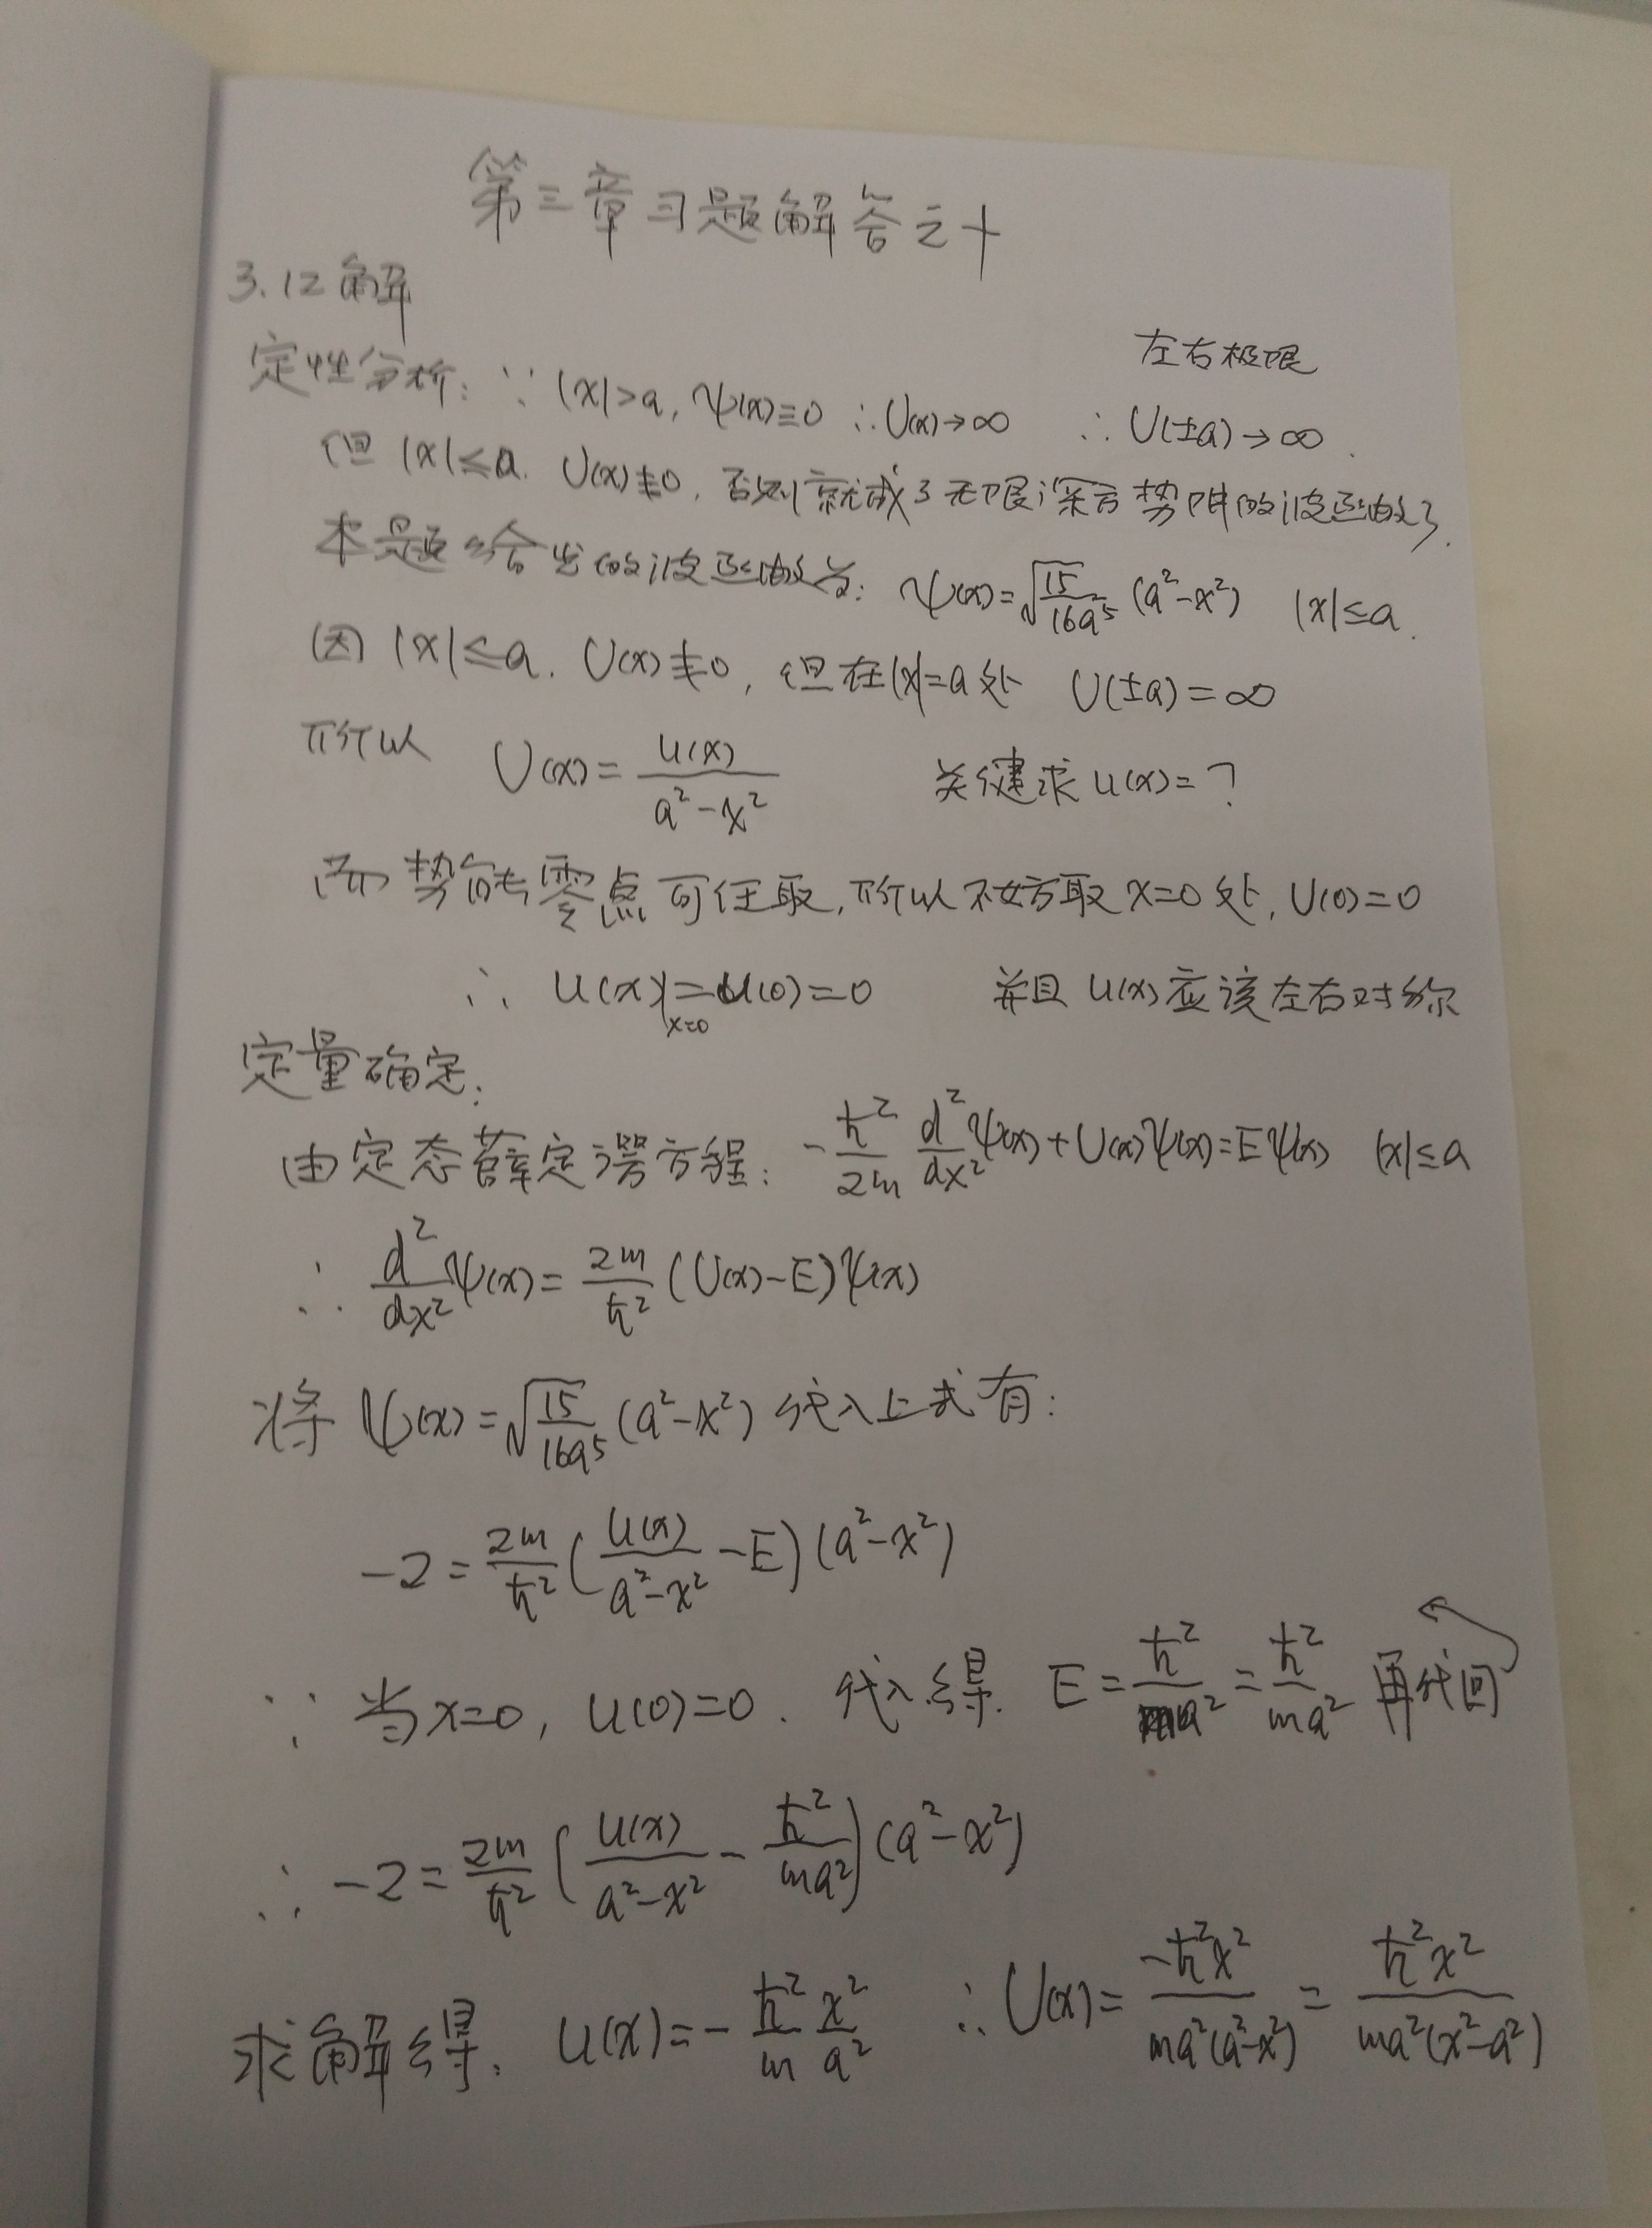 第三章习题解答之十
3.12 解
左右极限
定性分析: ∵ |x|>a, ψ(x)≡0 ∴U(x)→∞ ∴ U(±a)→∞.
但 |x|≤a. U(x)≢0, 否则就成了无限深方势阱的波函数了.
本题给出的波函数为: ψ(x)=√(15/16a⁵) (a²-x²) |x|≤a.
因 |x|≤a. U(x)≢0, 但在|x|=a处 U(±a)=∞
所以 U(x)= u(x)/(a²-x²) 关键求 u(x)=?
而势能零点可任取, 所以不妨取 x=0 处, U(0)=0
∴ u(x)|ₓ₌₀=u(0)=0 并且 u(x) 应该左右对称
定量确定:
由定态薛定谔方程: -ħ²/2m d²/dx² ψ(x)+U(x)ψ(x)=Eψ(x) |x|≤a
∴ d²/dx² ψ(x)= 2m/ħ² (U(x)-E)ψ(x)
将 ψ(x)=√(15/16a⁵) (a²-x²) 代入上式有:
-2= 2m/ħ² (u(x)/(a²-x²) -E) (a²-x²)
∵ 当x=0, u(0)=0. 代入得. E= ħ²/ma² = ħ²/ma² 再代回
∴ -2= 2m/ħ² (u(x)/(a²-x²) - ħ²/ma²) (a²-x²)
求解得: u(x)=- ħ²/m x²/a² ∴U(x)= -ħ²x²/ma²(a²-x²) = ħ²x²/ma²(x²-a²)